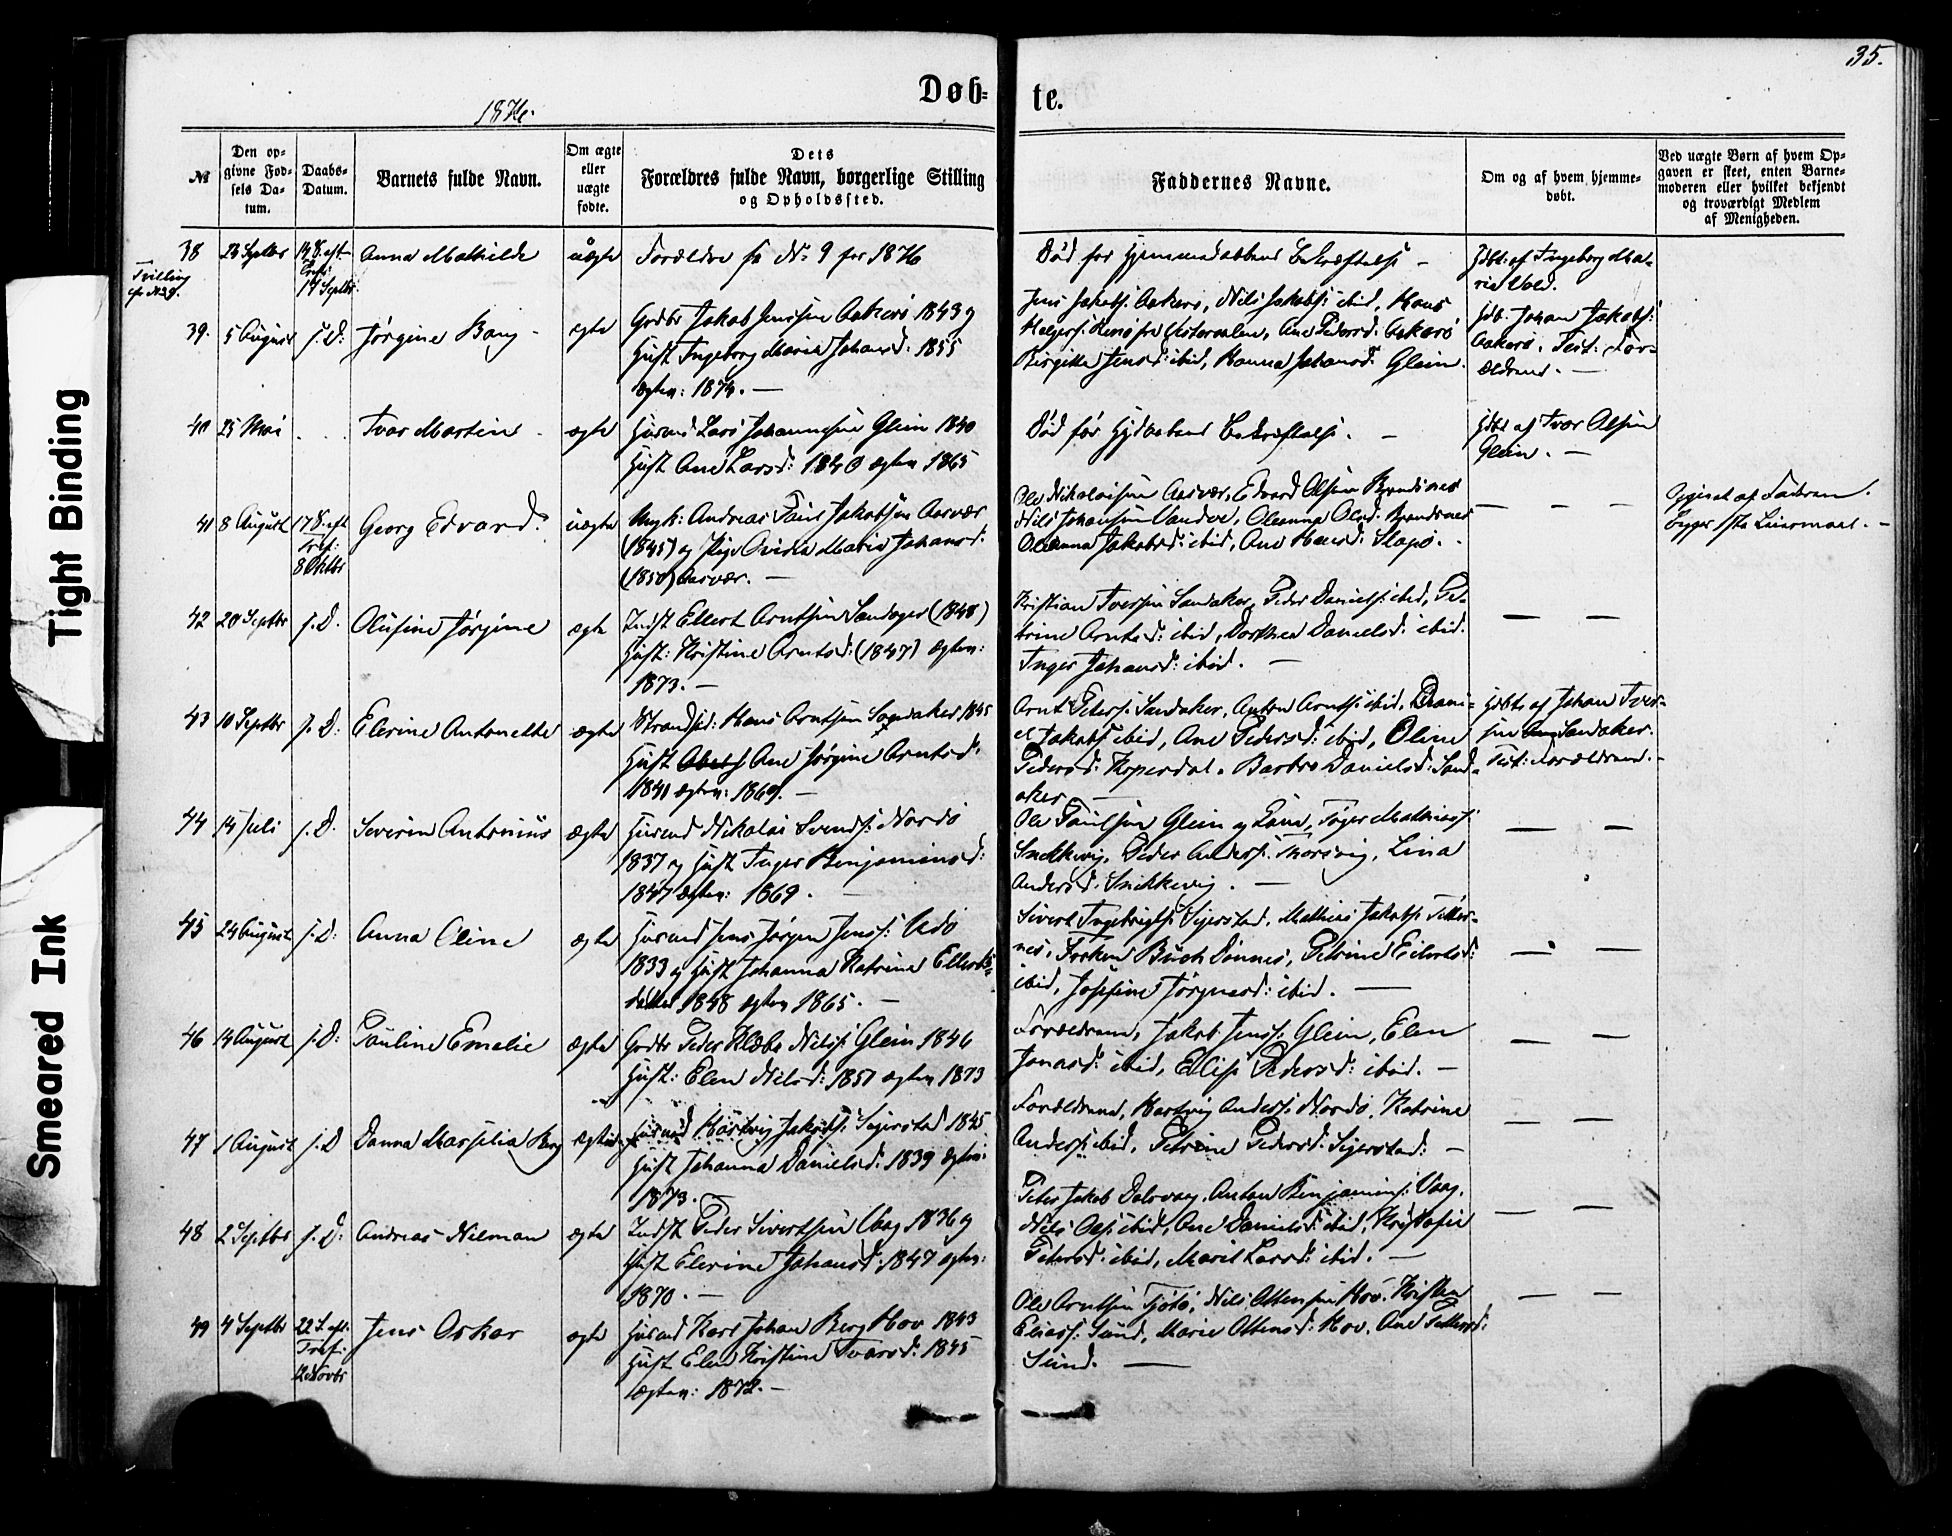 35.
Døb-
te.
1876.
№
Den op-
givne Fød-
sels Da-
tum.
Daabs-
Datum.
Barnets fulde Navn.
Om ægte
eller
uægte
fødte.
Dets
Forældres fulde Navn, borgerlige Stilling
og Opholdssted.
Faddernes Navne.
Om og af hvem hjemme-
døbt.
Ved uægte Børn af hvem Op-
gaven er skeet, enten Barne-
moderen eller hvilket bekjendt
og troværdigt Medlem
af Menigheden.
Tight Binding
Smeared Ink
38
Tvilling
Anna Mathilde
uægte
Forældre № 9 for 1876
Død før Hjemmedaabens Bekræftelse -
Hdbt. af Ingeborg Ma-
rie Vold.
39.
5 August
s. D:
Jørgine Bang
ægte
Gdbr Jakob Jenssen Aakerø 1843 og
Hust Ingeborg Maria Johansd: 1855
ægtev: 1874. -
Jens Jakobs: Aakerø, Nils Jakobs: ibid, Hans
Ane Pedersd: Aakerø
Birgitte Jensd: ibid, Hanna Johansd: Glein.
Hdb. Johan Jakobs:
Aakerø. Test: For-
ældrene. -
40
25 Mai
Ivar Martin
ægte
Husmd Lars Johannesen Glein 1840
Hust Ane Larsd: 1840 ægtev 1865
Død før Hjdaabens Bekræftelse. -
Hdbt af Ivar Olsen
Glein. -
41
8 August
17 S. eft
Tref:
8 Oktbr
Georg Edvard.
uægte
Ungk: Andreas Jakobsen Aasvær
(1845) og Pige Maria Johansd:
(1850) Aasvær. -
Ole Nikolaisen Aasvær, Edvard Olsen
Nils Johansen Vandve, Oleanna Olsd:
Jakobsd: ibid, Ane Hansd: Slapø.
Opgivet af Faderen.
Begges 1ste Leiermaal. -
42
20 Septbr
s. D.
Olufine Jørgine
ægte
Indst Ellert Arntsen Sandager (1848)
Hust: Kristine Arntsd: (1847) ægtev:
1873. -
Kristian Iversen Sandaker, Peder Daniels: ibid, Pe-
trine Arntsd: ibid, Dorthea Danielsd: ibid.
Inger Johansd: ibid. -
43
10 Septbr
s. D:
Elerine Antonette
ægte
Strandsid: Hans Arntsen Sandaker 1845
Hust Ane Jørgine Arntsd:
1841 ægtev: 1869. -
Arnt Peters: Sandaker, Anton Arnts: ibid, Dani-
el Jakobs: ibid, Ane Pedersd: ibid, Oline
Pedersd: Barbro Danielsd: Sand-
aker
Hdbt af Johan Iver-
sen Sandaker.
Test: Forældrene. -
44
14 Juli
s. D.
Severin Antonius
ægte
Husmd Nikolai Svends: Nordø
1837 og Hust Inger Benjaminsd:
1847 ægtev: 1869. -
Ole Paulsen Glein og Kone, Inger Mathiass:
Snekkevig, Peder Anders: Lina
Andersd: Snekkevig. -
45
24 August
s. D:
Anna Oline
ægte
Husmd Jens Jørgen Jens:
1833 og Hust Johanna Katrine Ellerts-
datter 1848 ægtev 1865. -
Sivert Ingebrigts: Sigerstad, Mathias Jakobs:
nes, Buch Dønnes, Petrine Eilertsd:
ibid, Josefine Jørgensd: ibid. -
46
14 August
s. D:
Pauline Emelie
ægte
Gdbr Peder Klæbo Nils: Glein 1846
Hust: Elen Nilsd: 1857 ægtev 1873
Forældrene, Jakob Jens: Glein, Elen
Jonasd: ibid, Elise Pedersd: ibid. -
47
1 August
s. D
Danna Marselia Berg
ægte
Husmd Hartvig Jakobs: Sigerstad 1845
Hust Johanna Danielsd: 1839 ægtev:
1873. -
Forældrene, Hartvig Anders: Nordø, Katrine
Anders: ibid, Petrine Pedersd: Sigerstad: -
48
2 Septbr
s. D:
Andreas Nilman
ægte
Indst Peder Sivertsen Vaag 1836 og
Hust Elerine Johansd: 1847 ægtev:
1870. -
Peter Jakob Dalsvaag, Anton Benjamins: Vaag,
Nils Ols: ibid, Ane Danielsd: ibid, Kristofer
Petersd: ibid, Marit Larsd: ibid. -
49
4 Septbr
22 S. eft:
Tref:
12 Novbr
Jens Oskar
ægte
Husmd Karl Johan Berg Hov 1843
Hust Elen Kristine Ivarsd: 1845
ægtev: 1872. -
Ole Arntsen Tjøtø, Nils Ottesen Hov, Kristen
Elias: Sund, Marie Ottesd: Hov, Ane
Sund. -